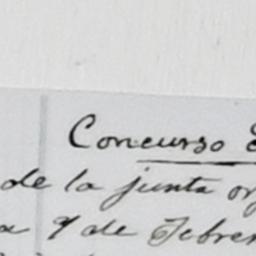 Concurso
de la junta or
a 9 de Febrer